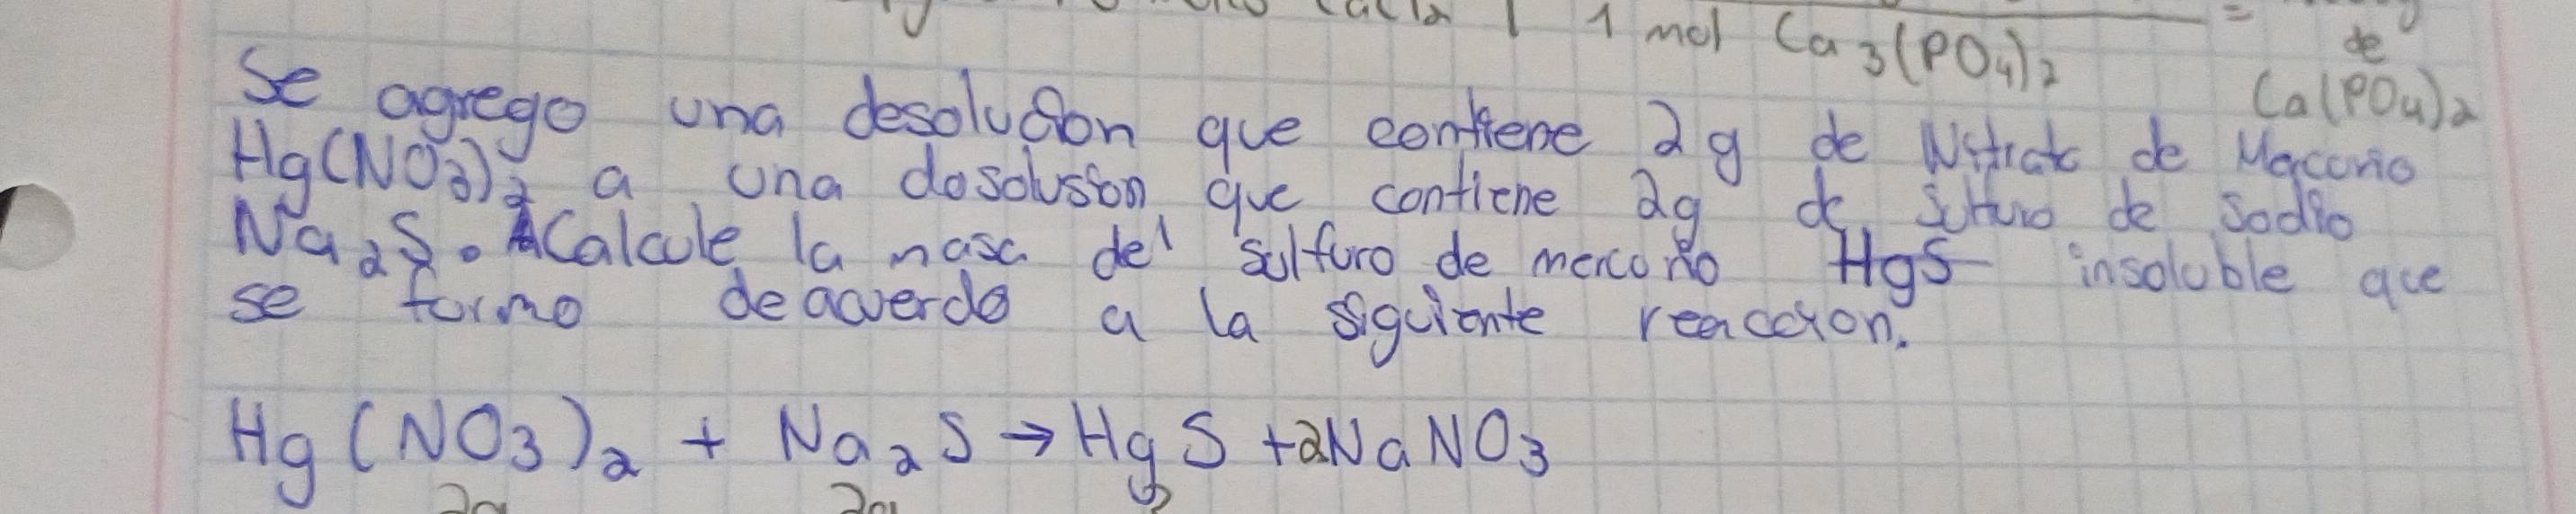 1 mol Ca3(PO4)2 =
de
Ca(PO4)2
Se agrego una desolución que contiene 2g de Nitrato de Mercurio
Hg(NO3)2 a una dosolusion que contiene 2g de Sulfuro de Sodio
Na2S. Calcule la masa del sulfuro de mercurio HgS insoluble que
se formo deacuerdo a la siguiente reaccion.
Hg(NO3)2 + Na2S → HgS + 2NaNO3
2g 2g